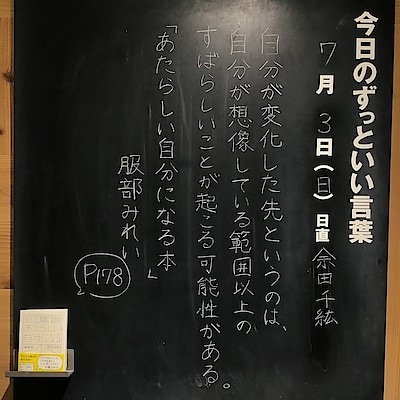 今日のずっといい言葉
7月3日(日)日直 余田千紘
自分が変化した先というのは、
自分が想像している範囲以上の
すばらしいことが起こる可能性がある。
「あたらしい自分になる本」
服部みれい
P178